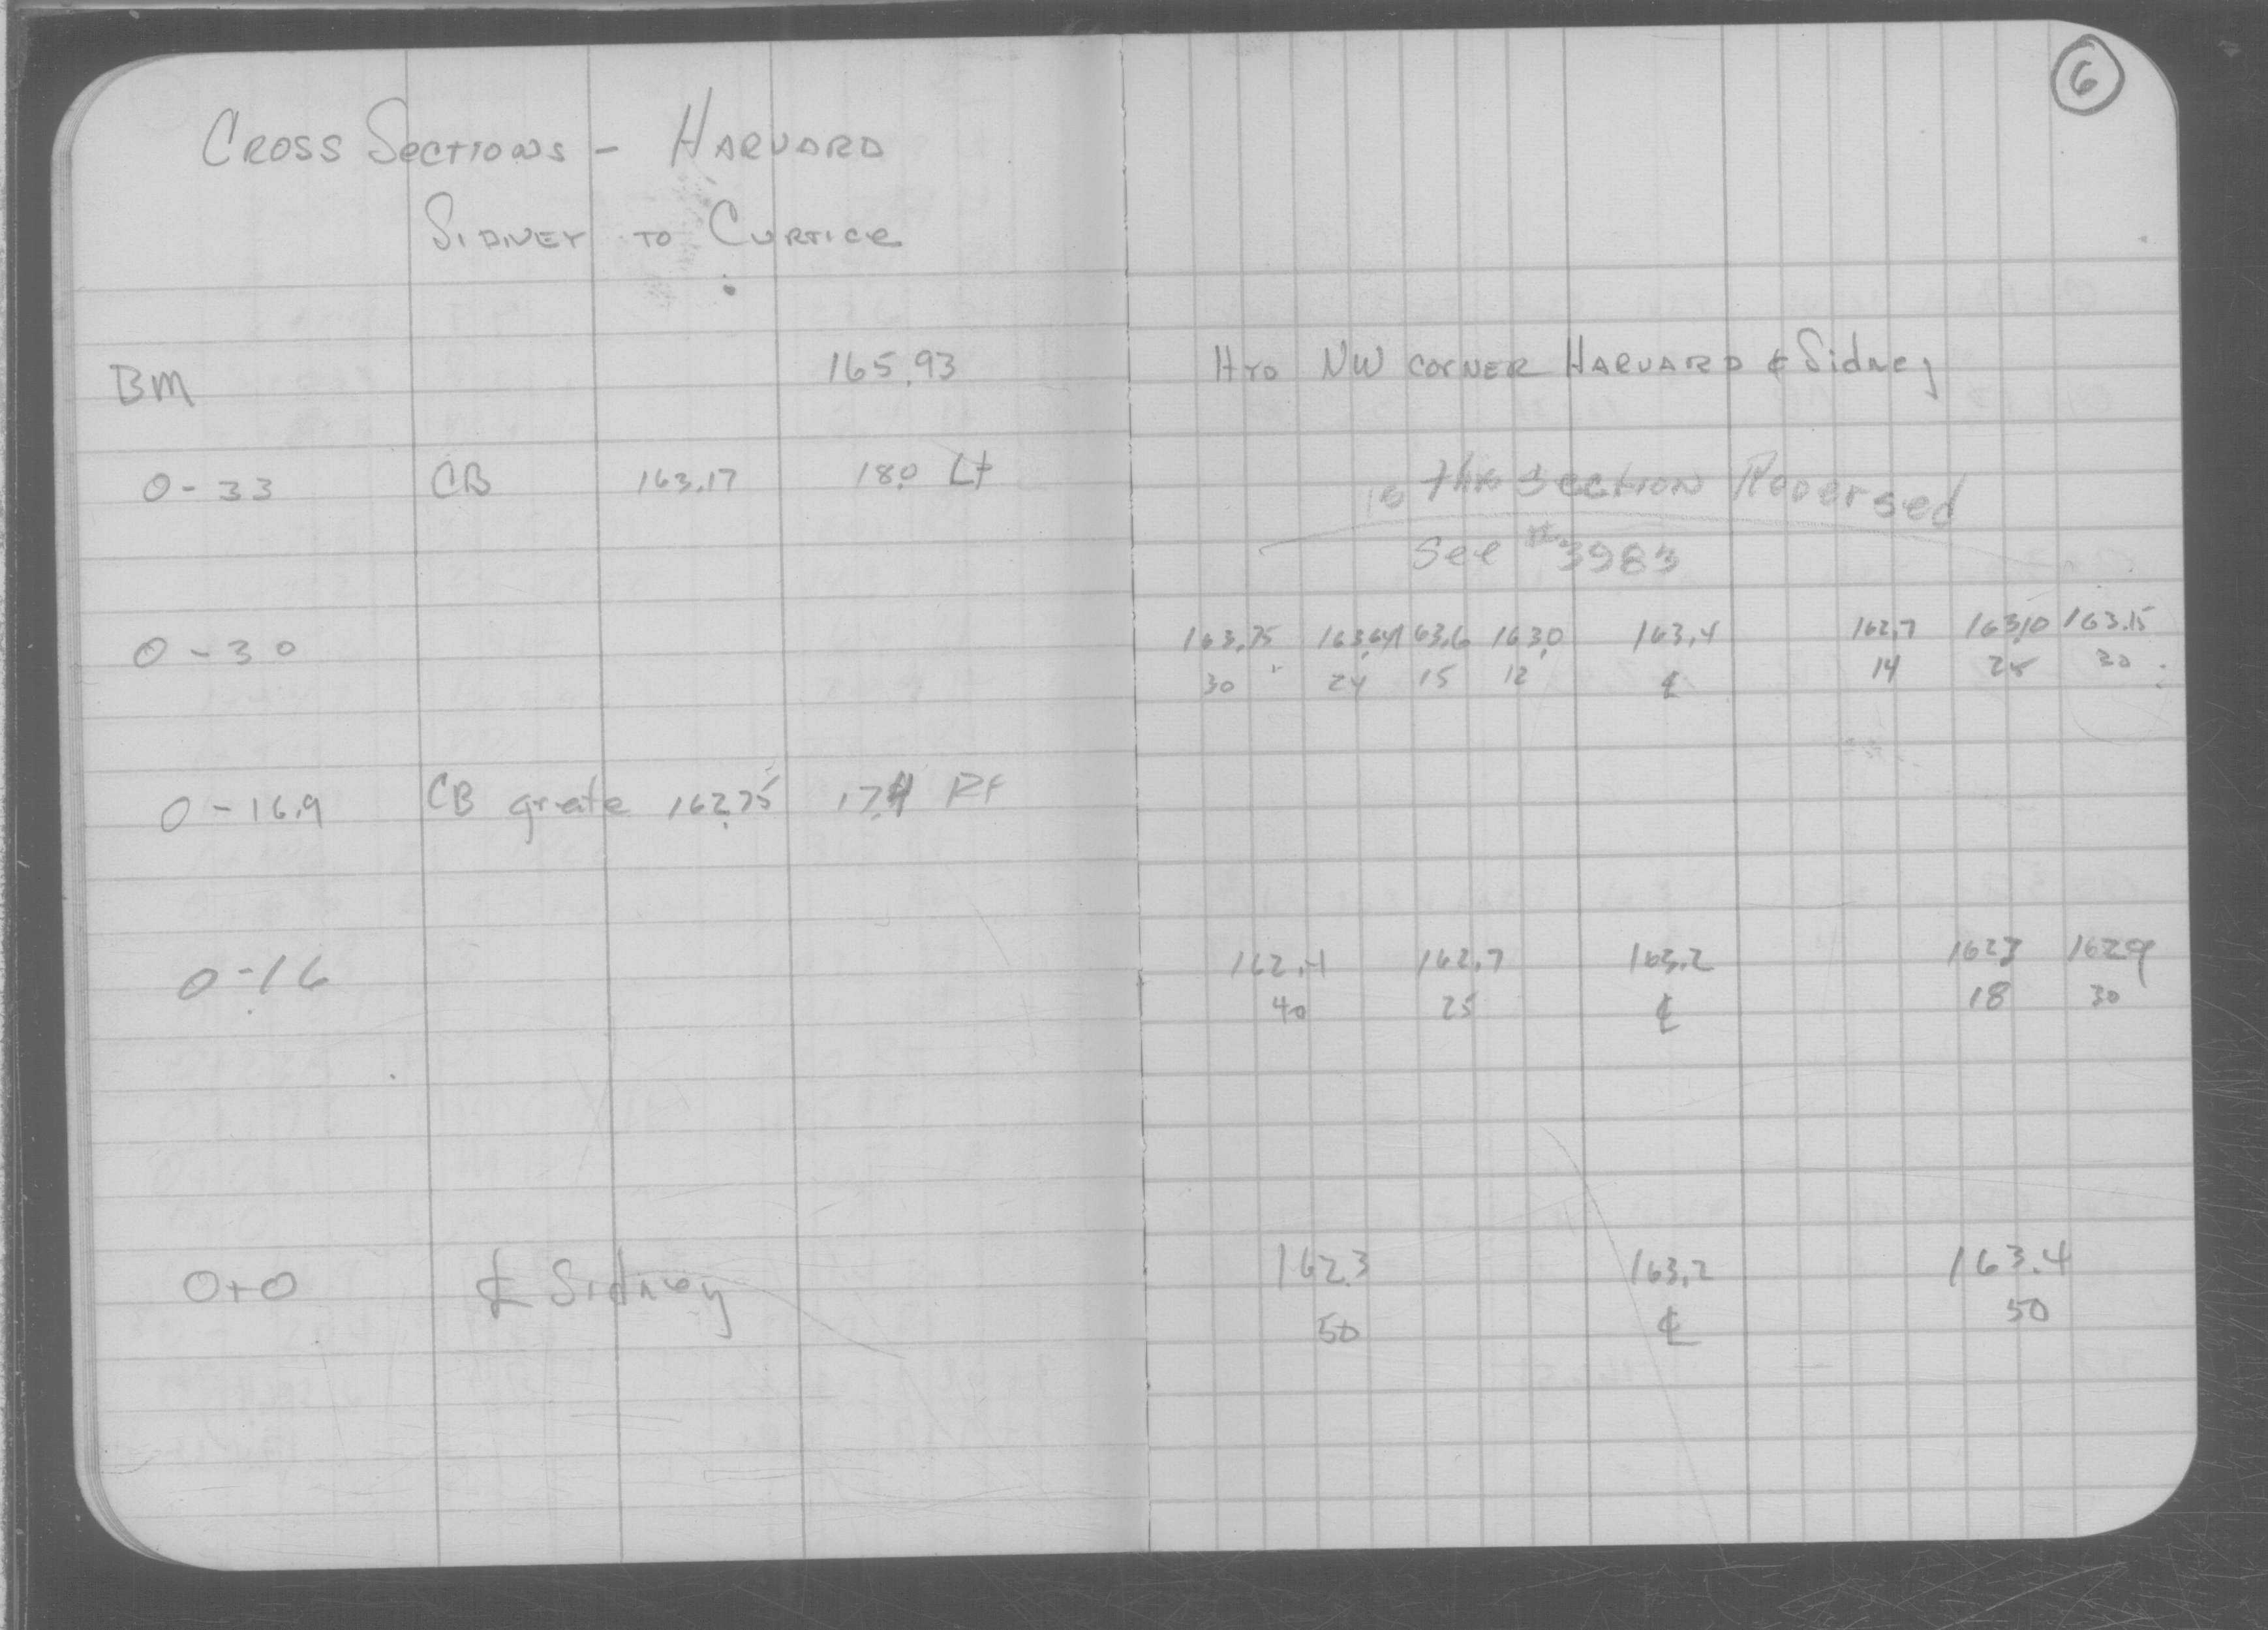 6
CROSS SECTIONS - HARVARD
SIDNEY TO CURTICE
BM 165.93 HYD NW CORNER HARVARD & Sidney
0-33 CB 163.17 18.0 Lt
is this section Reversed
See #3983
0-30 163.75 163.64 163.6 163.0 163.4 162.7 163.10 163.15
30 24 15 12 ℄ 14 25 30
0-16.9 CB grate 162.75 17.4 Rt
0-16 162.4 162.7 163.2 162.7 162.9
40 25 ℄ 18 30
0+0 ℄ Sidney 162.3 163.2 163.4
50 ℄ 50